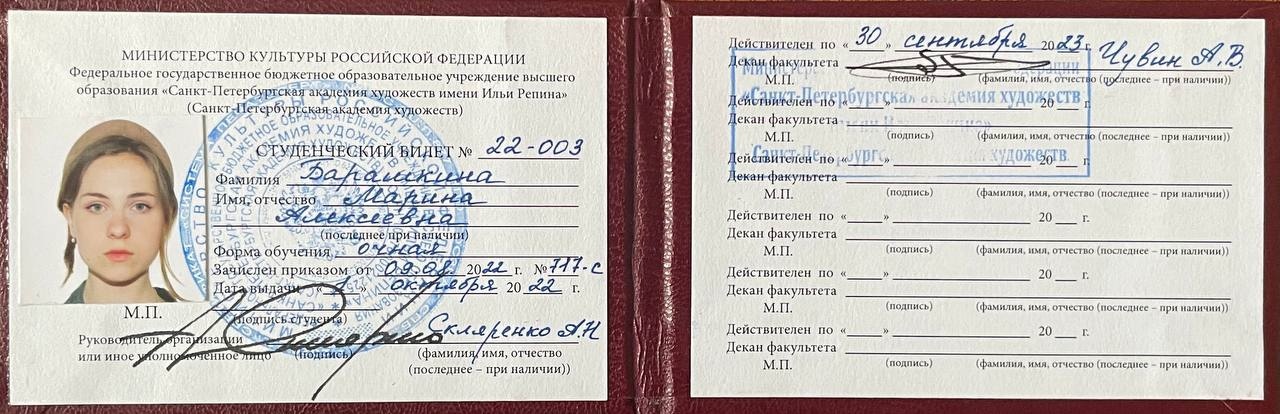 МИНИСТЕРСТВО КУЛЬТУРЫ РОССИЙСКОЙ ФЕДЕРАЦИИ
Федеральное государственное бюджетное образовательное учреждение высшего
образования «Санкт-Петербургская академия художеств имени Ильи Репина»
(Санкт-Петербургская академия художеств)
СТУДЕНЧЕСКИЙ БИЛЕТ № 22-003
Фамилия Барашкина
Имя, отчество Марина
Алексеевна
(последнее при наличии)
Форма обучения очная
Зачислен приказом от 09.08. 2022 г. № 717-с
Дата выдачи «1» октября 20 22 г.
М.П.
(подпись студента)
Руководитель организации Скляренко А.Н
или иное уполномоченное лицо (подпись) (фамилия, имя, отчество
(последнее – при наличии))
Действителен по «30» сентября 2023 г.
Декан факультета Чувин А.В.
М.П. (подпись) (фамилия, имя, отчество (последнее – при наличии))
«Санкт-Петербургская академия художеств
Действителен по « » 20 г.
Декан факультета
М.П. (подпись) (фамилия, имя, отчество (последнее – при наличии))
Действителен по « » 20 г.
Декан факультета
М.П. (подпись) (фамилия, имя, отчество (последнее – при наличии))
Действителен по « » 20 г.
Декан факультета
М.П. (подпись) (фамилия, имя, отчество (последнее – при наличии))
Действителен по « » 20 г.
Декан факультета
М.П. (подпись) (фамилия, имя, отчество (последнее – при наличии))
Действителен по « » 20 г.
Декан факультета
М.П. (подпись) (фамилия, имя, отчество (последнее – при наличии))